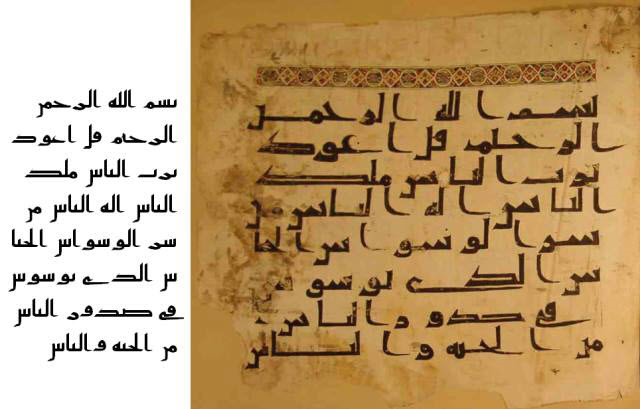 بسم الله الرحمن
الرحيم قل اعوذ
برب الناس ملك
الناس اله الناس من
شر الوسواس الخنا
س الذي يوسوس
في صدور الناس
من الجنة والناس
بسم الله الرحمن
الرحيم قل اعوذ
برب الناس ملك
الناس اله الناس من
شر الوسواس الخنا
س الذي يوسوس
في صدور الناس
من الجنة والناس